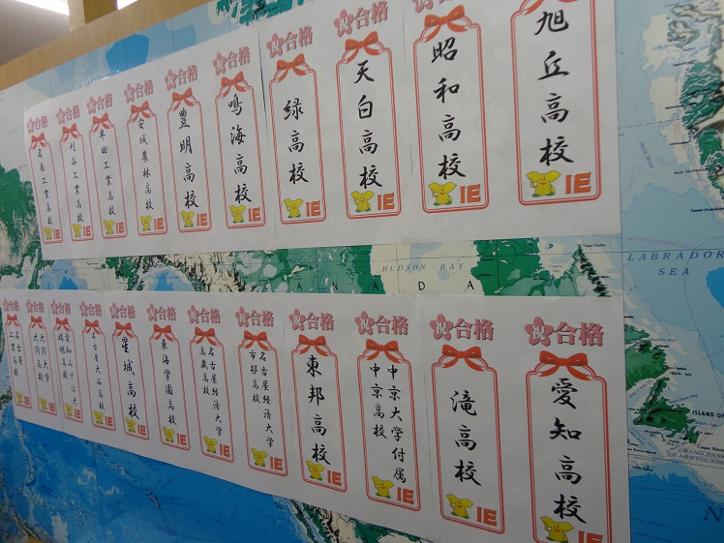 祝合格
旭丘高校
IE
合格
昭和高校
IE
合格
天白高校
IE
合格
緑高校
IE
合格
鳴海高校
IE
合格
豊明高校
IE
合格
安城農林高校
IE
合格
半田工業高校
IE
合格
刈谷工業高校
IE
合格
南工業高校
IE
HUDSON BAY
CANADA
LABRADOR
SEA
祝合格
愛知高校
IE
祝合格
滝高校
IE
合格
中京大学付属
中京高校
IE
合格
東邦高校
IE
合格
名古屋経済大学
市邨高校
IE
合格
名古屋経済大学
高蔵高校
IE
合格
東海学園高校
IE
合格
星城高校
IE
合格
名古屋大谷高校
IE
合格
瑞穂高校
IE
合格
大同大学
大同高校
IE
合格
名古屋
工業高校
IE
ISLAND OF